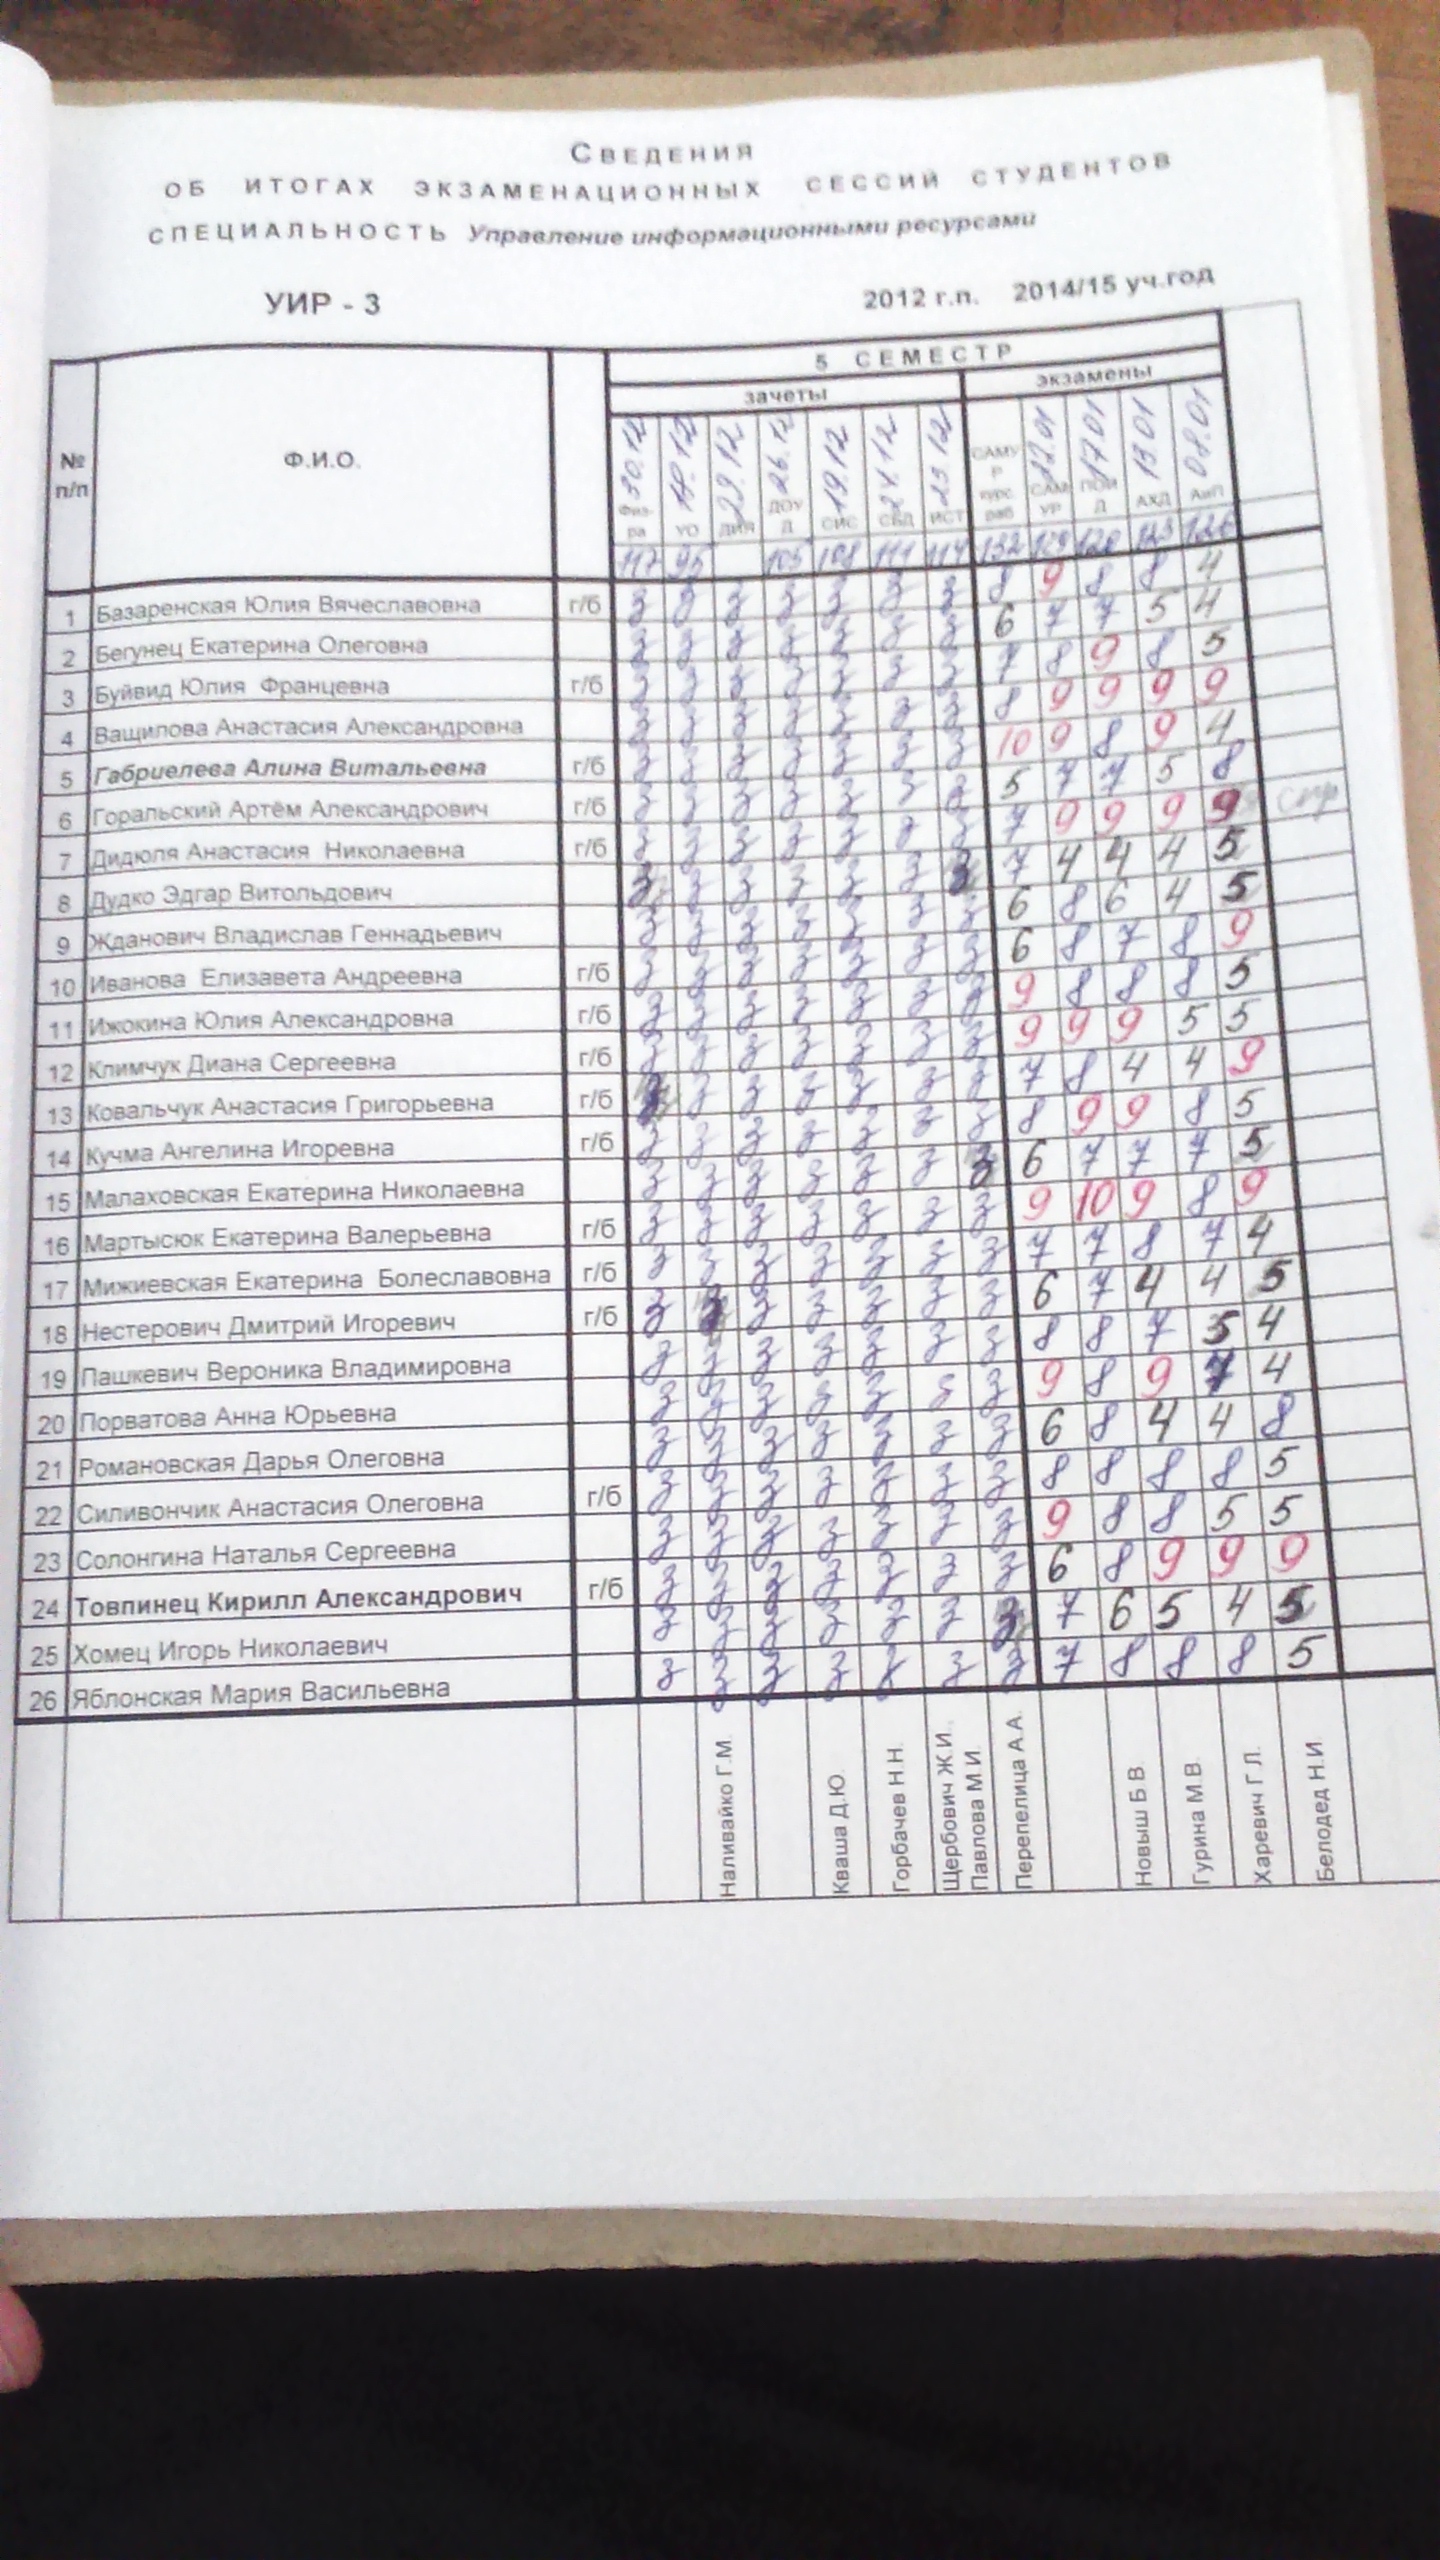 СВЕДЕНИЯ
ОБ ИТОГАХ ЭКЗАМЕНАЦИОННЫХ СЕССИЙ СТУДЕНТОВ
СПЕЦИАЛЬНОСТЬ Управление информационными ресурсами
УИР - 3 2012 г.п. 2014/15 уч.год
5 СЕМЕСТР
зачеты экзамены
№ п/п Ф.И.О.
30.12 19.12 26.12 19.12 24.12 23.12 17.01 13.01 08.01
Физ-ра УО ДИЯ ДОУД СИС СБД ИСТ САМУР курс. раб САМУР ПОИД АХД АиП
117 95 105 108 111 114 132 129 120 123 126
1 Базаренская Юлия Вячеславовна г/б з з з з з з з 8 9 8 8 4
2 Бегунец Екатерина Олеговна з з з з з з з 6 7 7 5 4
3 Буйвид Юлия Францевна г/б з з з з з з з 7 8 9 8 5
4 Ващилова Анастасия Александровна з з з з з з з 8 9 9 9 9
5 Габриелева Алина Витальевна г/б з з з з з з з 10 9 8 9 4
6 Горальский Артём Александрович г/б з з з з з з з 5 7 7 5 8
7 Дидюля Анастасия Николаевна г/б з з з з з з з 7 9 9 9 9
8 Дудко Эдгар Витольдович з з з з з з з 7 4 4 4 5
9 Жданович Владислав Геннадьевич з з з з з з з 6 8 6 4 5
10 Иванова Елизавета Андреевна г/б з з з з з з з 6 8 7 8 9
11 Ижокина Юлия Александровна г/б з з з з з з з 9 8 8 8 5
12 Климчук Диана Сергеевна г/б з з з з з з з 9 9 9 5 5
13 Ковальчук Анастасия Григорьевна г/б з з з з з з з 7 8 4 4 9
14 Кучма Ангелина Игоревна г/б з з з з з з з 8 9 9 8 5
15 Малаховская Екатерина Николаевна з з з з з з з 6 7 7 7 5
16 Мартысюк Екатерина Валерьевна г/б з з з з з з з 9 10 9 8 9
17 Мижиевская Екатерина Болеславовна г/б з з з з з з з 7 7 8 7 4
18 Нестерович Дмитрий Игоревич г/б з з з з з з з 6 7 4 4 5
19 Пашкевич Вероника Владимировна з з з з з з з 8 8 7 5 4
20 Порватова Анна Юрьевна з з з з з з з 9 8 9 7 4
21 Романовская Дарья Олеговна з з з з з з з 6 8 4 4 8
22 Силивончик Анастасия Олеговна г/б з з з з з з з 8 8 8 8 5
23 Солонгина Наталья Сергеевна з з з з з з з 9 8 8 5 5
24 Товпинец Кирилл Александрович г/б з з з з з з з 6 8 9 9 9
25 Хомец Игорь Николаевич з з з з з з з 7 6 5 4 5
26 Яблонская Мария Васильевна з з з з з з з 7 8 8 8 5
Наливайко Г.М.
Кваша Д.Ю.
Горбачев Н.Н.
Щербович Ж.И.,
Павлова М.И.
Перепелица А.А.
Новыш Б.В.
Гурина М.В.
Харевич Г.Л.
Белодед Н.И.